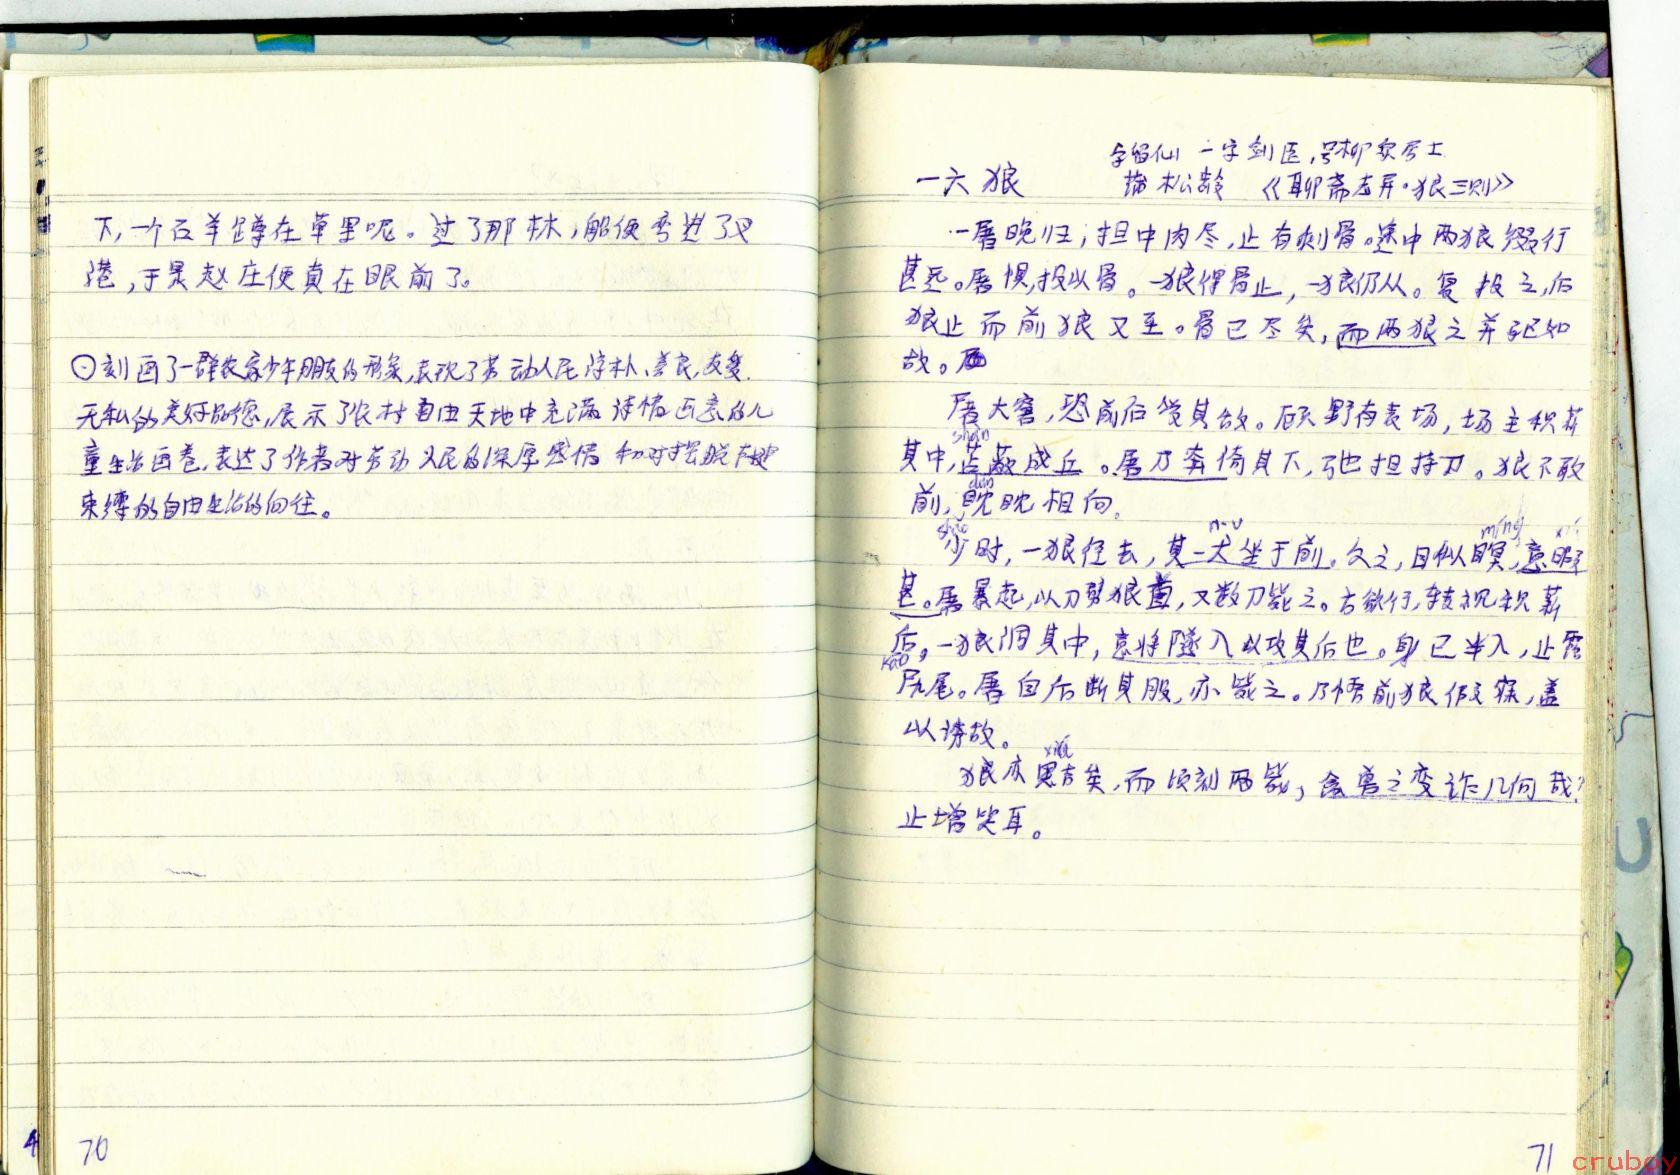 下,一个石羊蹲在草里呢。过了那林,船便弯进了叉
港,于是赵庄便真在眼前了。
⊙刻画了一群农家少年朋友的形象,表现了劳动人民淳朴、善良,友爱
无私的美好品德,展示了农村自由天地中充满诗情画意的儿
童生活画卷,表达了作者对劳动人民的深厚感情和对摆脱
束缚的自由生活的向往。
4 70
字留仙 一字剑臣,号柳泉居士
一六 狼 蒲松龄 《聊斋志异·狼三则》
一屠晚归,担中肉尽,止有剩骨。途中两狼缀行
甚远。屠惧,投以骨。一狼得骨止,一狼仍从。复投之,后
狼止而前狼又至。骨已尽矣,而两狼之并驱如
故。
屠大窘,恐前后受其敌。顾野有麦场,场主积薪
shàn
其中,苫蔽成丘。屠乃奔倚其下,弛担持刀。狼不敢
dān
前,眈眈相向。
shǎo míng xiá
少时,一狼径去,其一犬坐于前。久之,目似瞑,意暇
甚。屠暴起,以刀劈狼首,又数刀毙之。方欲行,转视积薪
后,一狼洞其中,意将隧入以攻其后也。身已半入,止露
kāo
尻尾。屠自后断其股,亦毙之。乃悟前狼假寐,盖
以诱敌。
xiá
狼亦黠矣,而顷刻两毙,禽兽之变诈几何哉?
止增笑耳。
71
cruboy